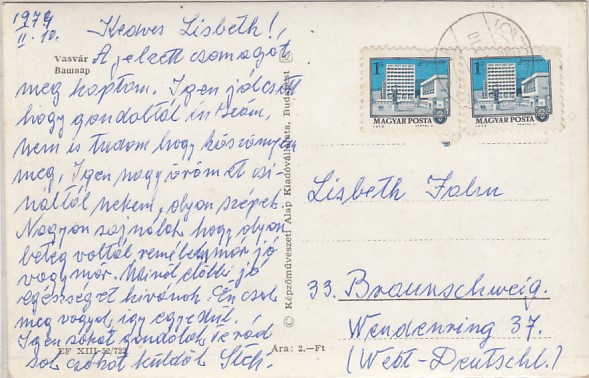 1979
II. 10.
Kedves Lisbeth!
Vasvár
Вашвар
A jelzett csomagot
meg kaptam. Igen jól esett
hogy gondoltál
nem is tudom hogy köszönjem
meg, Igen nagy örömet csi-
náltál nekem, olyan szépek.
Nagyon sajnálok hogy olyan
beteg voltál remélem már jó
vagy már. Minél előbbi jó
egészséget kivánok. Én csak
meg vagyok, így egyedül.
Igen sokat gondolok
sok csókot küldök
EF XIII-52/722
Ára: 2.-Ft
© Képzőművészeti Alap Kiadóvállalata, Budapest
1 Ft
MAGYAR POSTA
1
MAGYAR POSTA
Lisbeth
33. Braunschweig.
Wendenring 37.
(West-Deutschl.)